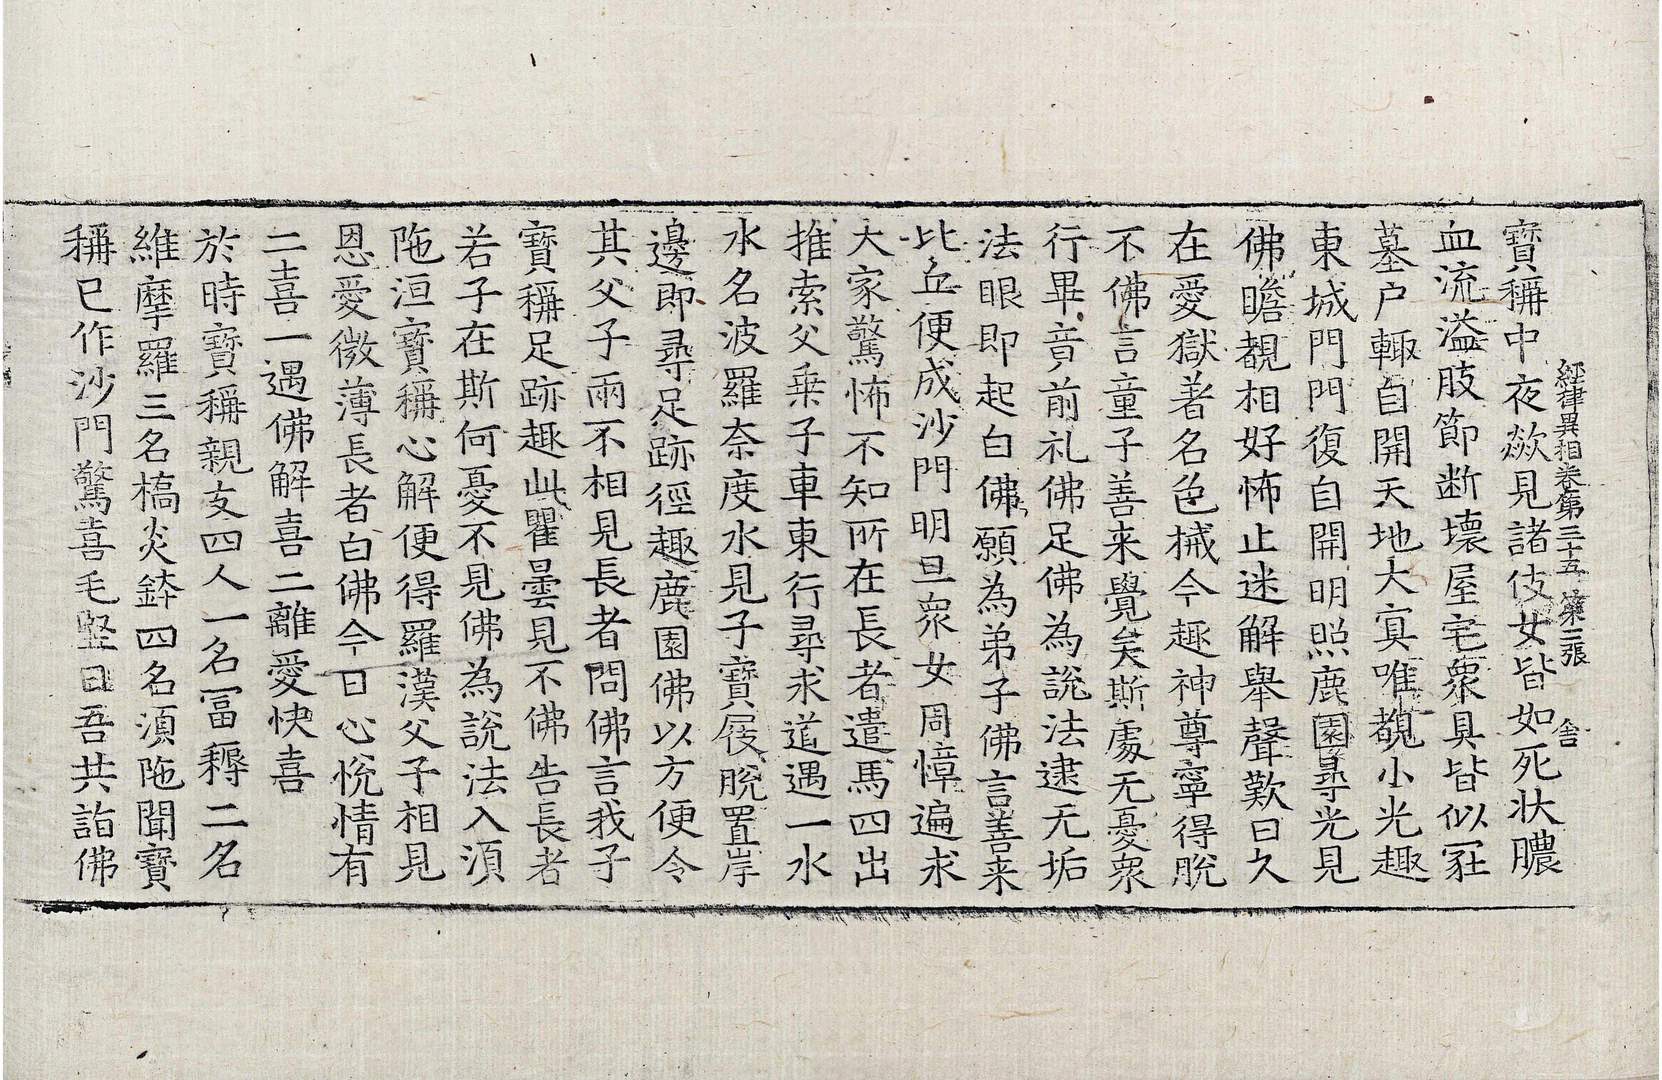 經律異相卷第三十五 第二張 舎
寳稱中夜欻見諸伎女皆如死状膿
血流溢肢節断壞屋宅衆具皆似冢
墓户輙自開天地大㝠唯覩小光趣
東城門門復自開明照鹿園尋光見
佛瞻覩相好怖止迷解舉聲歎曰久
在愛獄著名色械今趣神尊寧得脫
不佛言童子善来覺矣斯處无憂衆
行畢竟前礼佛足佛為説法逮无垢
法眼即起白佛願為弟子佛言善来
比丘便成沙門明旦衆女周慞遍求
大家驚怖不知所在長者遣馬四出
推索父乗子車東行尋求道遇一水
水名波羅奈度水見子寳屐脫置岸
邊即尋足跡徑趣鹿園佛以方便令
其父子兩不相見長者問佛言我子
寳稱足跡趣此瞿曇見不佛告長者
若子在斯何憂不見佛為説法入湏
陁洹寳稱心解便得羅漢父子相見
恩愛微薄長者白佛今日心悅情有
二喜一遇佛解喜二離愛快喜
於時寳稱親友四人一名冨耨二名
維摩羅三名橋炎鉢四名湏陁聞寳
稱已作沙門驚喜毛竪曰吾共詣佛